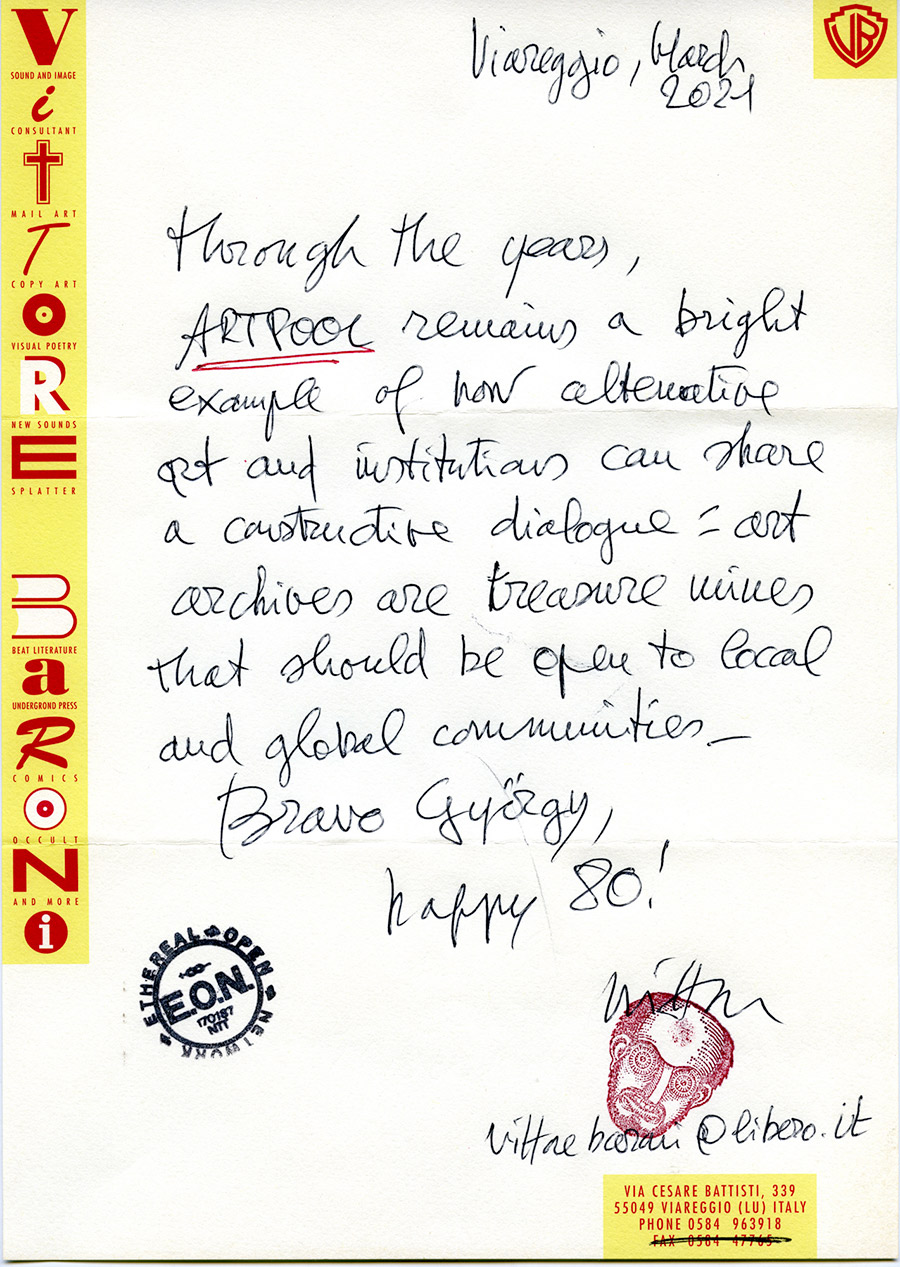 ViTTORE BaRONi
SOUND AND IMAGE
CONSULTANT
MAIL ART
COPY ART
VISUAL POETRY
NEW SOUNDS
SPLATTER
BEAT LITERATURE
UNDERGROND PRESS
COMICS
OCCULT
AND MORE
VB
Viareggio, March
2021
through the years,
ARTPOOL remains a bright
example of how alternative
art and institutions can share
a constructive dialogue = art
archives are treasure mines
that should be open to local
and global communities_
Bravo György,
happy 80!
ETHEREAL OPEN NETWORK
E.O.N.
170187
NTT
Vittore
vittorebaroni@libero.it
VIA CESARE BATTISTI, 339
55049 VIAREGGIO (LU) ITALY
PHONE 0584 963918
FAX 0584 47765